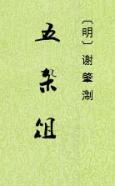 〔明〕谢肇淛
五杂俎